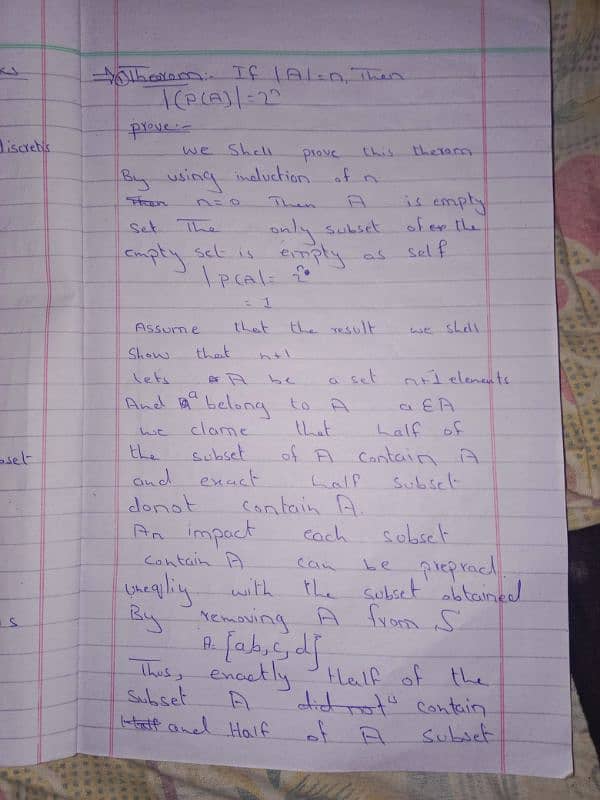 →① Theoram:- If |A|=n, Then
|(P(A)|=2ⁿ
prove:-
we Shell prove this theram
By using induction of n
n=0 Then A is empty
set The only subset of the
empty set is empty as self
|P(A|= 2⁰
= 1
Assume that the result we shell
Show that n+1
lets A be a set n+1 elements
And a belong to A a ∈ A
we clame that half of
the subset of A contain A
and exact half subset
donot contain A.
An impact each subset
contain A can be preprad
with the subset obtained
By removing A from S
A= [ab,c,d]
Thus, enactly Half of the
Subset A did not a contain
Half and Half of A subset
liscrets
set
s